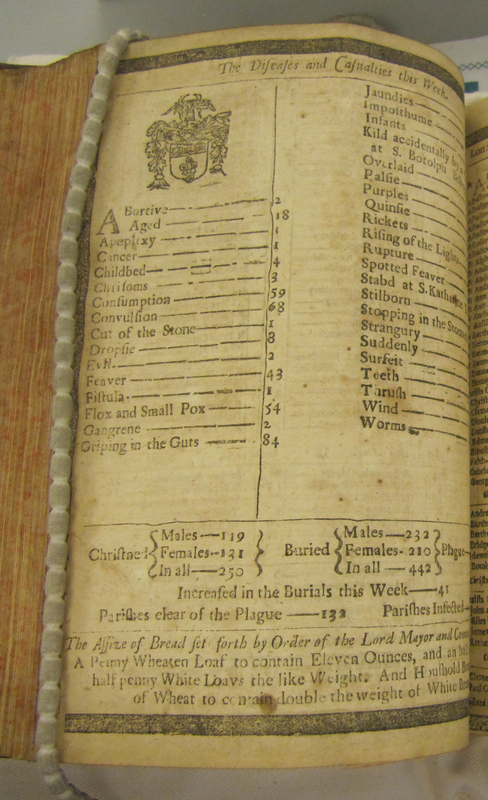 The Diſeaſes and Caſualties this Week.
ABortive — 2
Aged — 18
Apoplexy — 1
Cancer — 1
Childbed — 4
Chriſoms — 3
Conſumption — 59
Convulſion — 68
Cut of the Stone — 1
Dropſie — 8
Evil — 2
Feaver — 43
Fiſtula — 1
Flox and Small Pox — 54
Gangrene — 2
Griping in the Guts — 84
Jaundies
Impoſthume
Infants
Kild accidentally by
at S. Botolph
Overlaid
Palſie
Purples
Quinſie
Rickets
Riſing of the Lights
Rupture
Spotted Feaver
Stabd at S. Katharine
Stilborn
Stopping in the
Strangury
Suddenly
Surfeit
Teeth
Thruſh
Wind
Worms
Chriſtned { Males — 119 Females — 131 In all — 250 } Buried { Males — 232 Females — 210 In all — 442 } Plague
Increaſed in the Burials this Week — 41
Pariſhes clear of the Plague — 132 Pariſhes Infected
The Aſſize of Bread ſet forth by Order of the Lord Mayor and
A Penny Wheaten Loaf to contain Eleven Ounces, and an
half penny White Loavs the like Weight. And Houſhold
of Wheat to contain double the weight of White